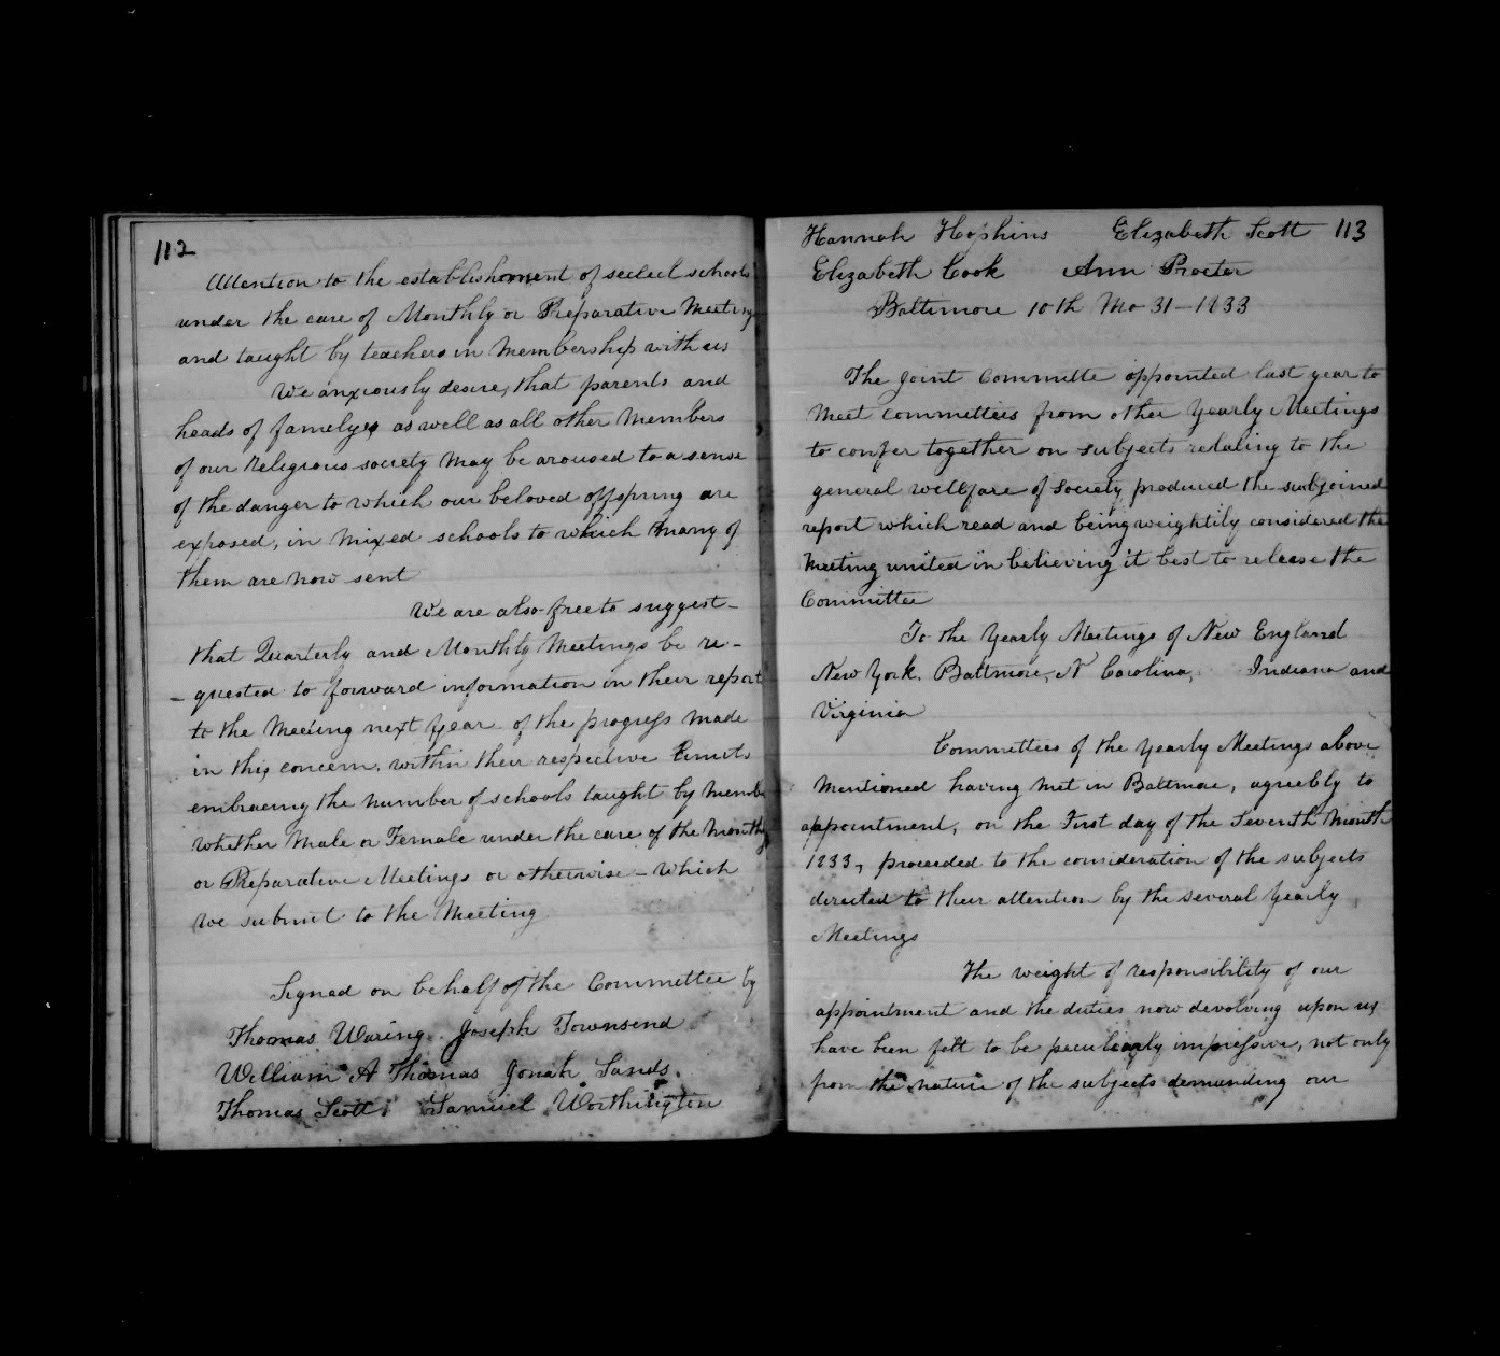 112
Attention to the establishment of select schools
under the care of Monthly or Preparative Meeting
and taught by teachers in membership with us
We anxiously desire, that parents and
heads of familys as well as all other members
of our Religious society may be aroused to a sense
of the danger to which our beloved offspring are
exposed, in mixed schools to which many of
them are now sent
We are also free to suggest -
that Quarterly and Monthly Meetings be re -
- quested to forward information in their report
to the Meeting next year of the progress made
in this concern. within their respective limits
embraceing the number of schools taught by memb
whether male or Female under the care of the monthly
or Preparative Meetings or otherwise - which
we submit to the Meeting
Signed on behalf of the Committee by
Thomas Waring. Joseph Townsend
William A Thomas Jonah Sands.
Thomas Scott. Samuel Worthington
Hannah Hopkins Elizabeth Scott 113
Elizabeth Cook Ann Procter
Baltimore 10th Mo 31 - 1833
The Joint Committe appointed last year to
meet committees from other Yearly Meetings
to confer together on subjects relating to the
general wellfare of Society produced the subjoined
report which read and being weightily considered the
Meeting united in believing it best to release the
Committee
To the Yearly Meetings of New England
New York, Baltimore, N Carolina, Indiana and
Virginia
Committees of the Yearly Meetings above
mentioned having met in Baltimore, agreebly to
appointment, on the First day of the Seventh month
1833, proceeded to the consideration of the subjects
directed to their attention by the several Yearly
Meetings
The weight of responsibility of our
appointment and the duties now devolving upon us
have been felt to be peculiarly impressive, not only
from the nature of the subjects demanding our